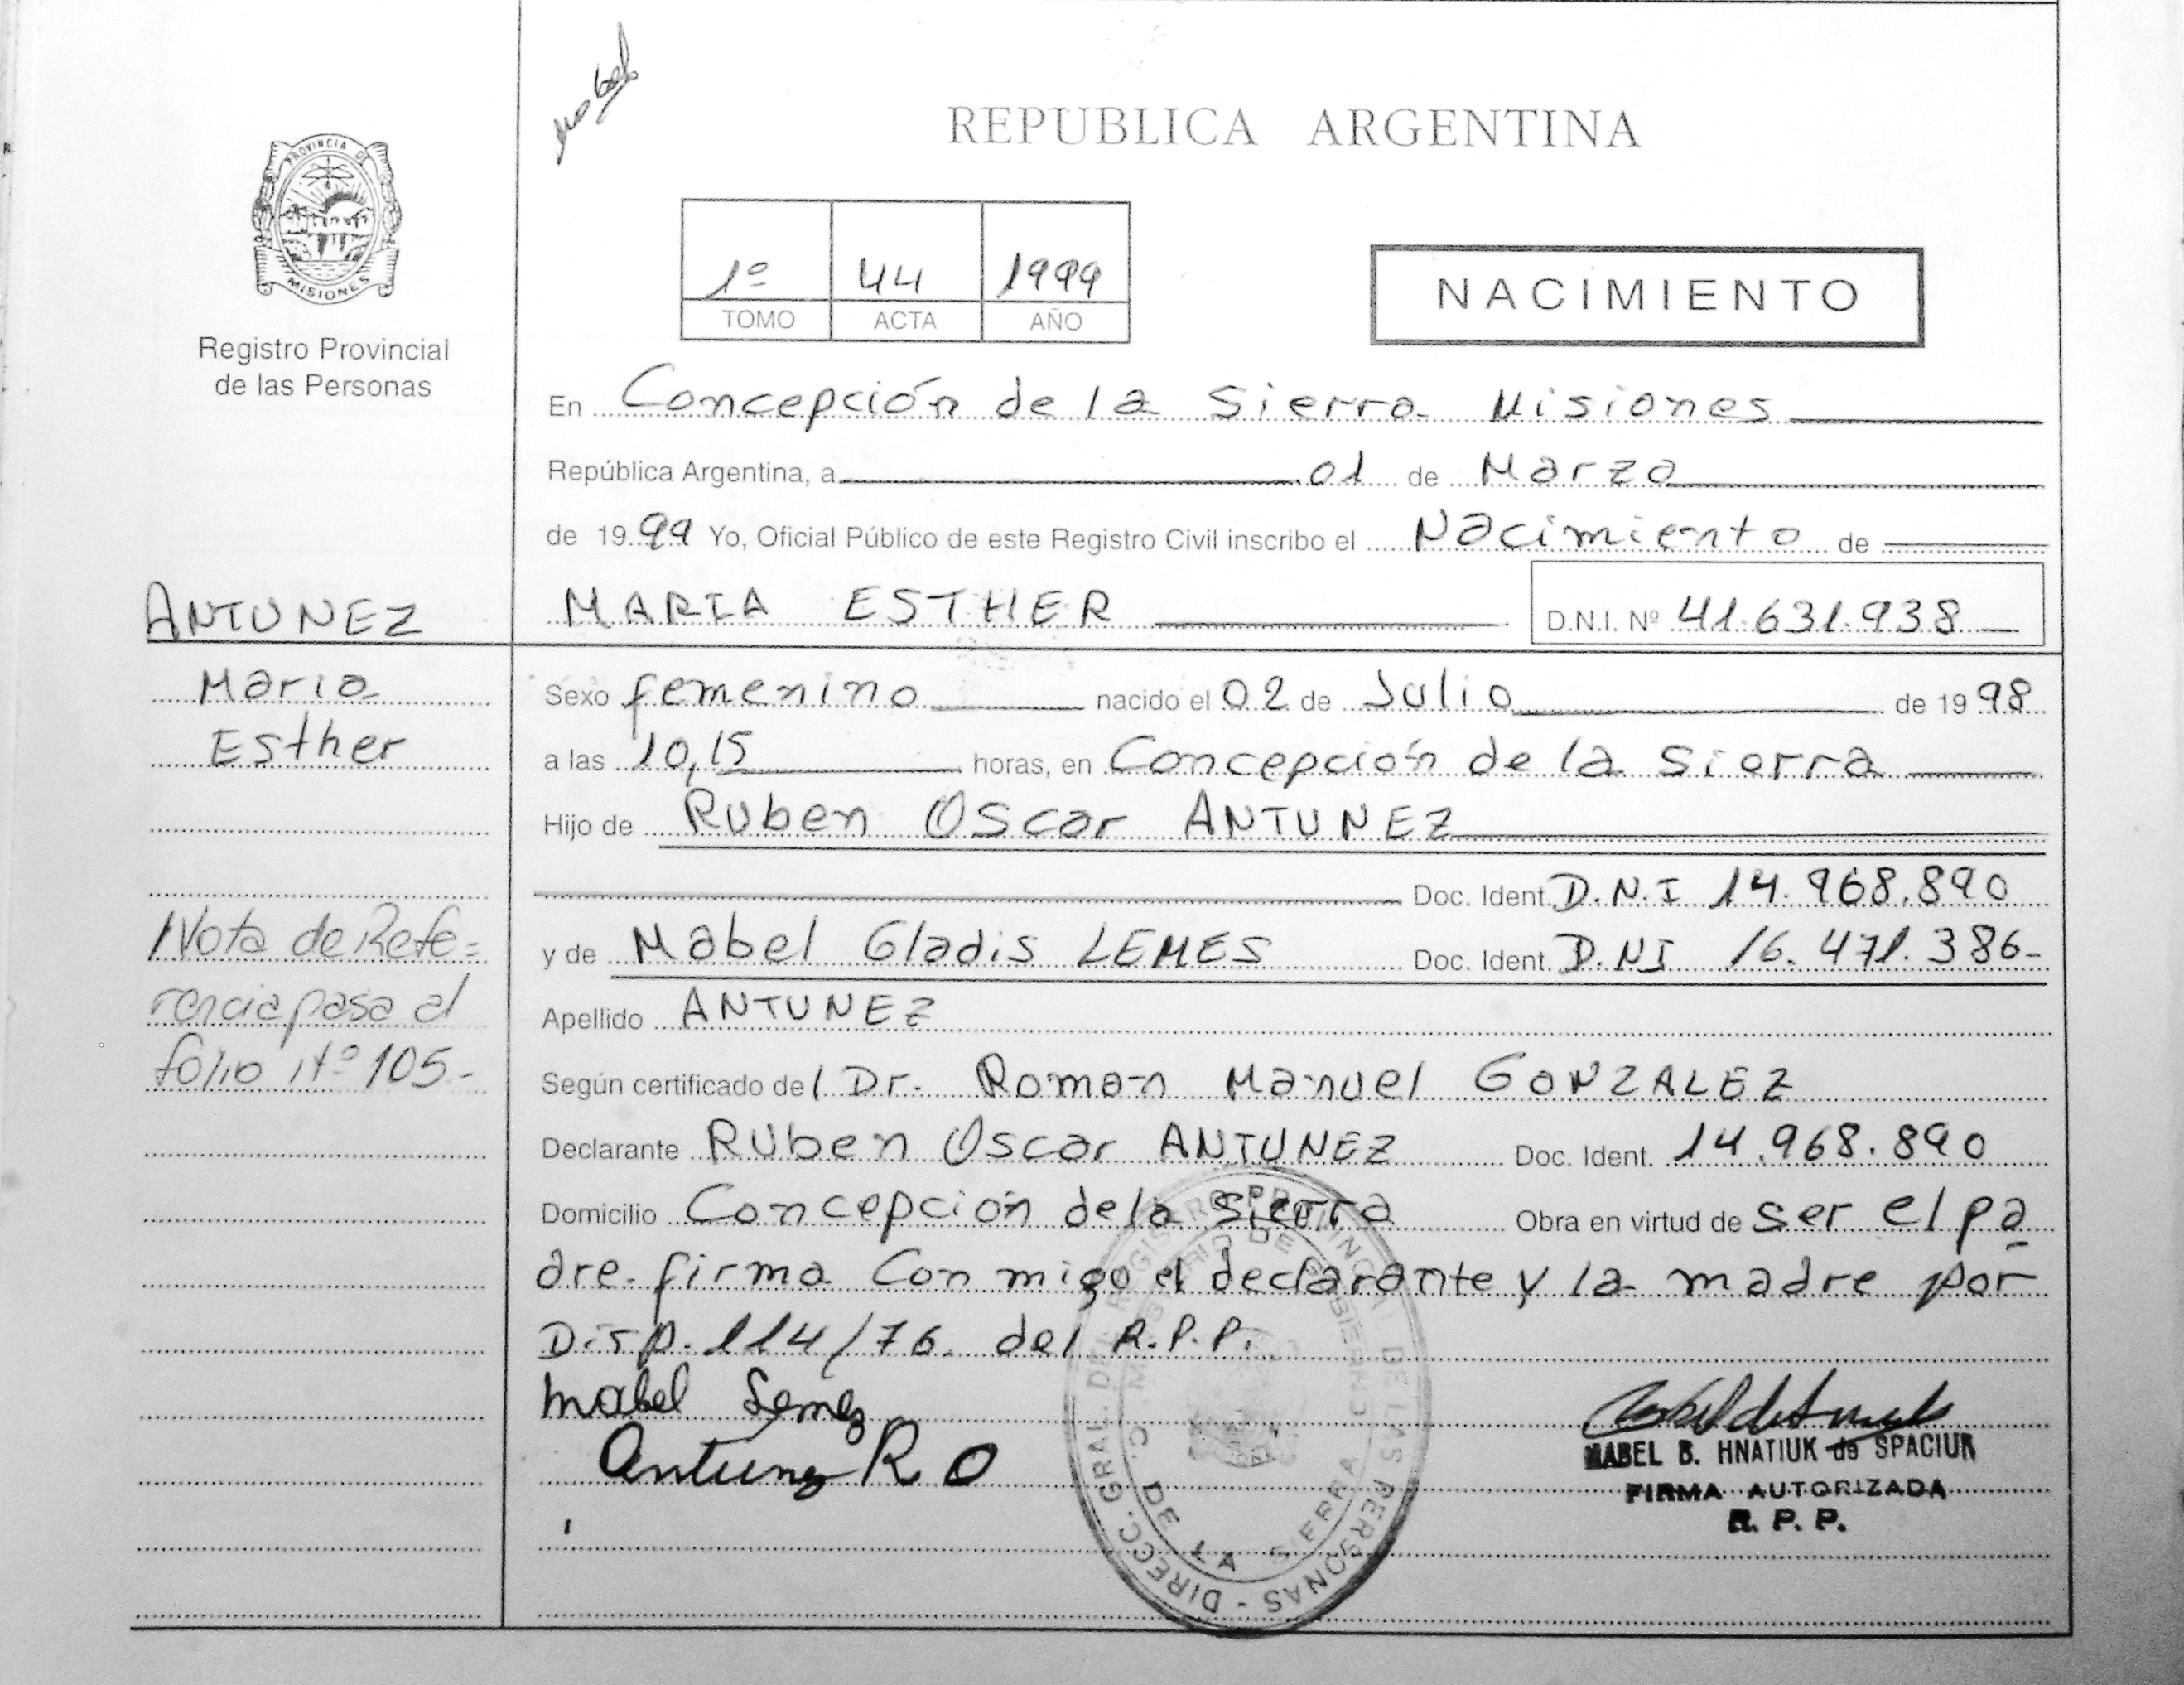 Mabel
REPUBLICA ARGENTINA
PROVINCIA D
MISIONES
Registro Provincial
de las Personas
1º 44 1999
TOMO ACTA AÑO
NACIMIENTO
En Concepción de la Sierra Misiones
República Argentina, a 01 de Marzo
de 1999 Yo, Oficial Público de este Registro Civil inscribo el Nacimiento de
ANTUNEZ
MARIA ESTHER D.N.I. Nº 41.631.938
Maria
Esther
Sexo femenino nacido el 02 de Julio de 1998
a las 10,15 horas, en Concepción de la Sierra
Hijo de Ruben Oscar ANTUNEZ
Doc. Ident. D.N.I 14.968.890
y de Mabel Gladis LEMES Doc. Ident. D.NI 16.471.386-
Apellido ANTUNEZ
Nota de Refe=
rencia pasa al
folio Nº 105-
Según certificado del Dr. Roman Manuel GONZALEZ
Declarante Ruben Oscar ANTUNEZ Doc. Ident. 14.968.890
Domicilio Concepción de la Sierra Obra en virtud de ser el pa
dre. firma Con migo el declarante y la madre por
Disp. 114/76. del R.P.P.
Mabel Lemez
Antunez R O
MABEL B. HNATIUK de SPACIUK
FIRMA AUTORIZADA
R. P. P.
DIRECC. GRAL. DE REGISTRO PROVINCIAL DE LAS PERSONAS -
C. DE LA SIERRA